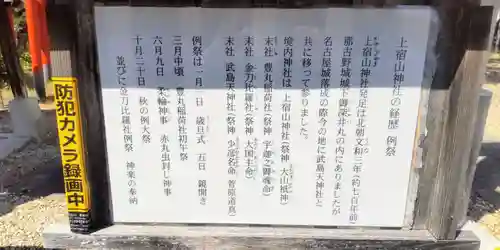 上宿山神社の経歴 例祭
上宿山神社発足は北朝文和三年(約七百年前)
那古野城城下御深井丸の内にありましたが
名古屋城落成の際今の地に武島天神社と
共に移つて参りました。
境内神社は 上宿山神社(祭神 大山祇神)
末社 豊丸稲荷社(祭神 宇迦之御魂命)
末社 金刀比羅社(祭神 大国主命)
末社 武島天神社(祭神 少彦名命 菅原道真)
例祭は一月一日 歳旦式 五日 鏡開き
三月中頃 豊丸稲荷社初午祭
六月九日 茅輪神事 赤丸虫封じ神事
十月二十日 秋の例大祭
並びに金刀比羅社例祭 神楽の奉納
防犯カメラ録画中